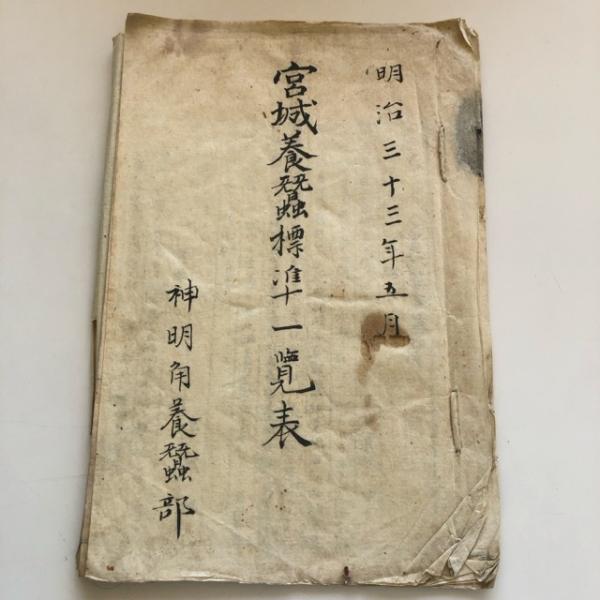 明治三十三年五月
宮城養蚕標準一覧表
神明角養蚕部